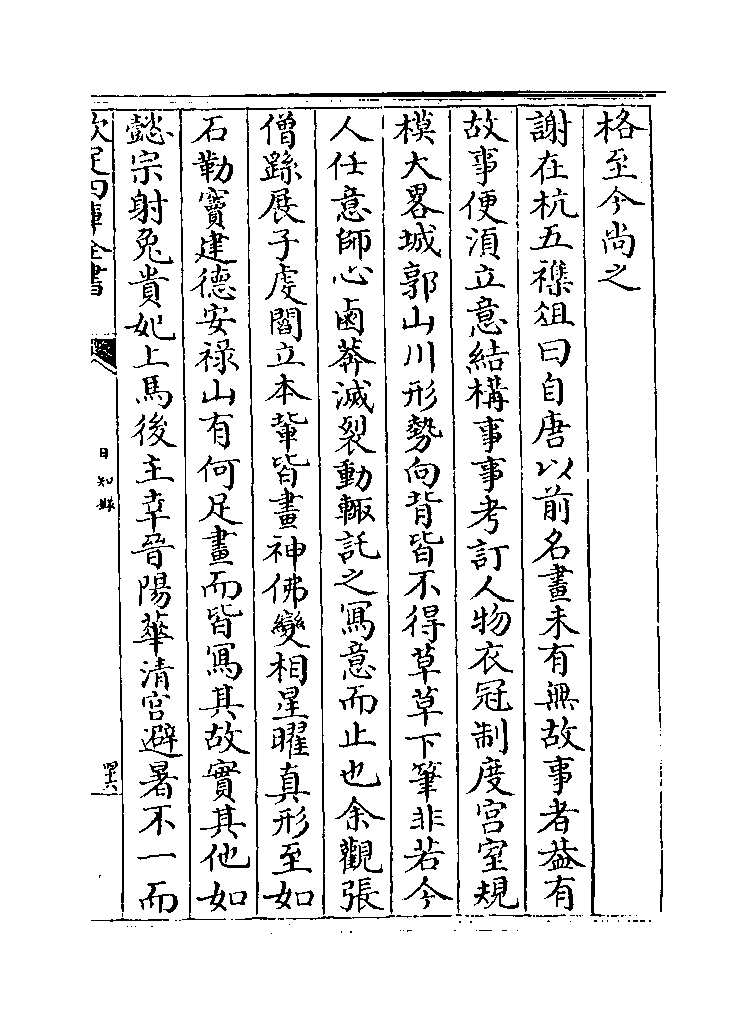 格至今尚之
謝在杭五襍俎曰自唐以前名畫未有無故事者葢有
故事便湏立意結構事事考訂人物衣冠制度宮室規
模大畧城郭山川形勢向背皆不得草草下筆非若今
人任意師心鹵莽滅裂動輒託之寫意而止也余觀張
僧繇展子虔閻立本軰皆畫神佛變相星曜真形至如
石勒竇建德安祿山有何足畫而皆寫其故實其他如
懿宗射兔貴妃上馬後主幸晉陽華清宮避暑不一而
欽定四庫全書
日知錄
四六